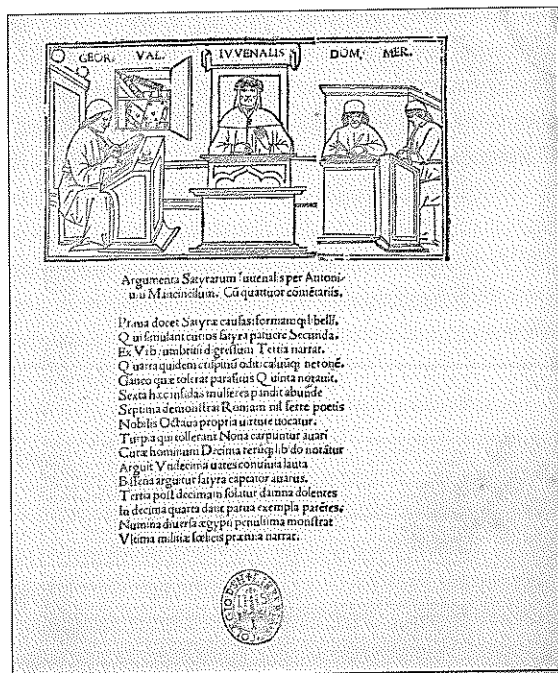 GEOR. VAL. IVVENALIS DOM. MER.
Argumenta Satyrarum Iuuenalis per Antoni-
um Mancinellum. Cū quattuor cōmētariis.
Prima docet Satyræ causas: formamq; libelli.
Qui simulant curios satyra patuere Secunda.
Ex Vrbe umbritii digressum Tertia narrat.
Quarta quidem crispinū odit caluūq; neronē.
Ganeo quæ tolerat parasitus Quinta notauit.
Sexta hæc insidas mulieres pandit abunde
Septima demonstrat Romam nil ferre poetis
Nobilis Octaua propria uirtute uocatur.
Turpia qui tollerant Nona carpuntur auari
Curæ hominum Decima rerūq; libido notātur
Arguit Vndecima uates conuiuia lauta
Bissena arguitur satyra captator auarus.
Tertia post decimam solatur damna dolentes
In decima quarta dant parua exempla parētes.
Numina diuersa ægypti penultima monstrat
Vltima militiæ fœlicis præmia narrat.